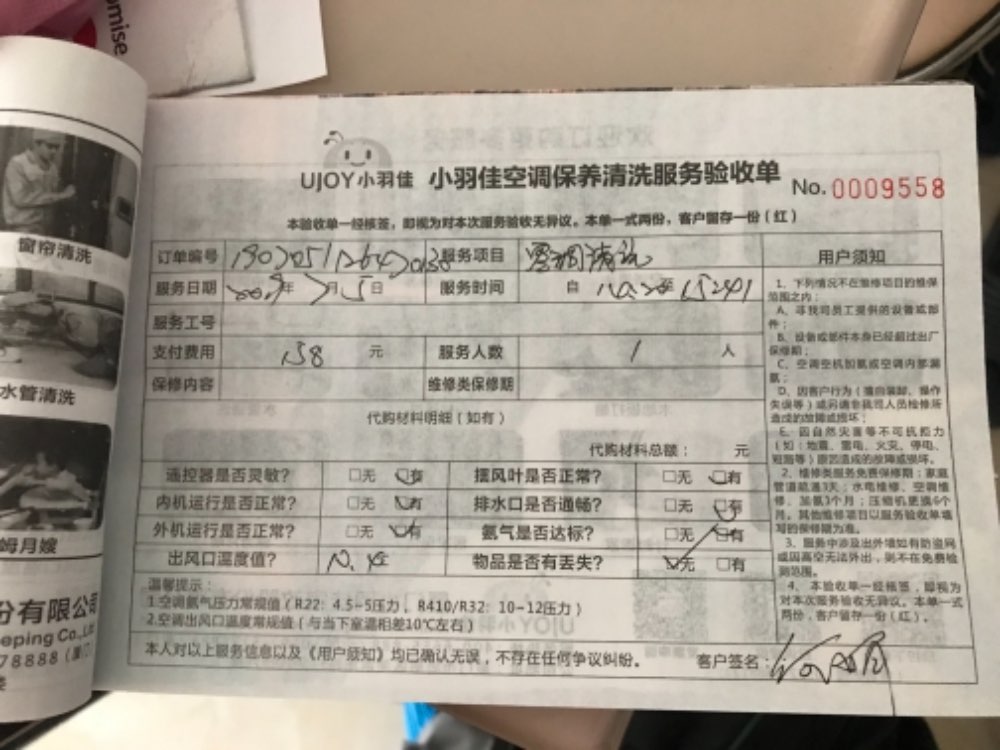 omise
窗帘清洗
水管清洗
姆月嫂
份有限公司
eping Co.,Lt
78888（厦门
UJOY小羽佳 小羽佳空调保养清洗服务验收单 No. 0009558
本验收单一经核签，即视为对本次服务验收无异议。本单一式两份，客户留存一份（红）
订单编号 服务项目
服务日期 年 7月5日 服务时间 自
服务工号
支付费用 158 元 服务人数 1 人
保修内容 维修类保修期
代购材料明细（如有）
代购材料总额： 元
遥控器是否灵敏？ □无 □有 摆风叶是否正常？ □无 □有
内机运行是否正常？ □无 □有 排水口是否通畅？ □无 □有
外机运行是否正常？ □无 □有 氨气是否达标？ □无 □有
出风口温度值？ 物品是否有丢失？ □无 □有
温馨提示：
1.空调氨气压力常规值（R22：4.5-5压力，R410/R32：10-12压力）
2.空调出风口温度常规值（与当下室温相差10℃左右）
本人对以上服务信息以及《用户须知》均已确认无误，不存在任何争议纠纷。 客户签名：
用户须知
1、下列情况不在维修项目的维保
范围之内：
A、非我司员工提供的设备或部
件；
B、设备或部件本身已经超过出厂
保修期；
C、空调空机加氨或空调内部漏
氨；
D、因客户行为（擅自装卸、操作
失误等）或另请非我司人员检修所
造成的故障或损坏；
E、因自然灾害等不可抗拒力
（如：地震、雷电、火灾、停电、
短路等）原因造成的故障或损坏。
2、维修类服务免费保修期：家庭
管道疏通3天；水电维修、空调维
修、加氨3个月；压缩机更换6个
月。其他维修项目以服务验收单填
写的保修期为准。
3、服务中涉及出外墙如有防盗网
或因高空无法外出，则不在免费检
测范围。
4、本验收单一经核签，即视为
对本次服务验收无异议。本单一式
两份，客户留存一份（红）。